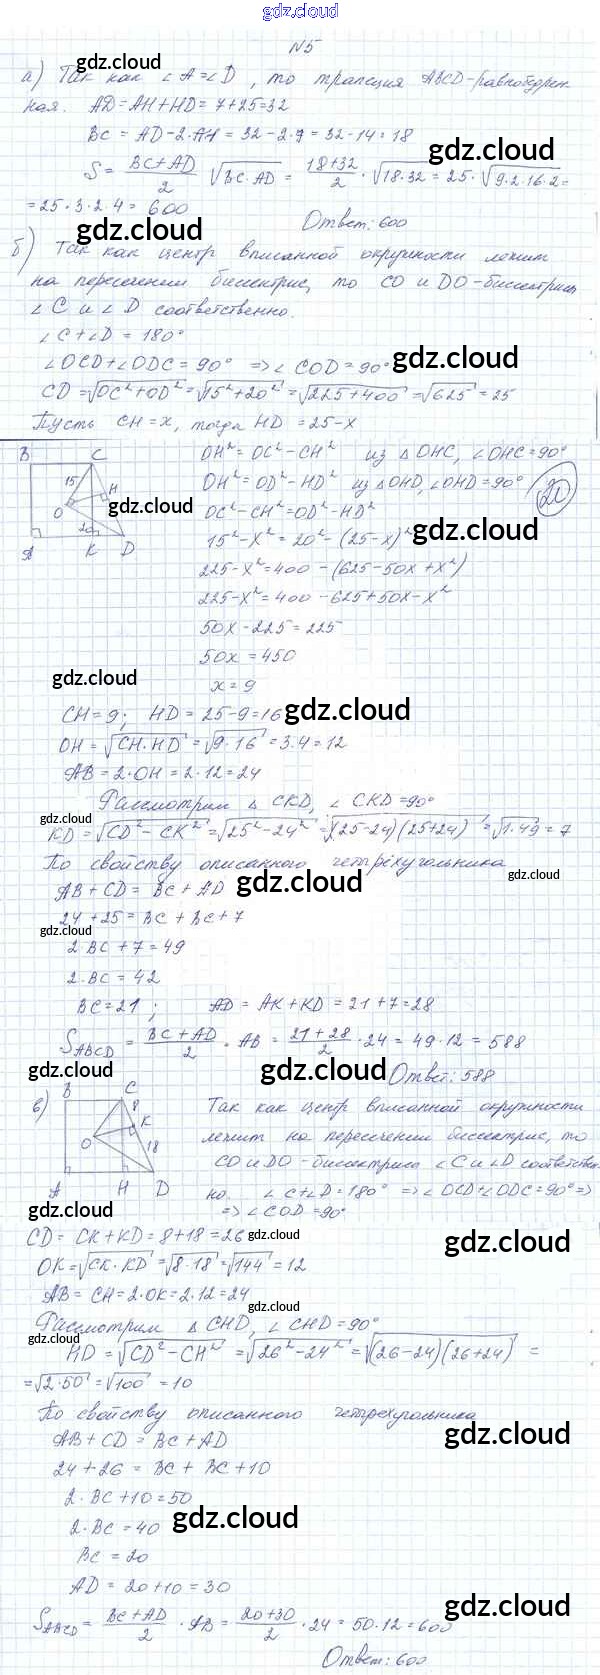 gdz.cloud
N5
gdz.cloud
а) Так как ∠A=∠D, то трапеция ABCD-равнобедрен-
ная. AD=AH+HD=7+25=32
BC = AD-2·AH = 32-2·7 = 32-14=18
gdz.cloud
S = (BC+AD)/2 · √(BC·AD) = (18+32)/2 · √(18·32) = 25·√(9·2·16·2) =
=25·3·2·4 = 600
Ответ: 600
gdz.cloud
б) Так как центр вписанной окружности лежит
на пересечении биссектрис, то CO и DO-биссектрисы
∠C и ∠D соответственно.
∠C+∠D = 180°
∠OCD+∠ODC = 90° ⇒ ∠COD = 90°
gdz.cloud
CD = √(OC²+OD²) = √(15²+20²) = √(225+400) = √625 = 25
Пусть CH=x, тогда HD = 25-x
B C 15 H O 20 A K D
OH² = OC²-CH² из △OHC, ∠OHC=90°
OH² = OD²-HD² из △OHD, ∠OHD=90°
20
gdz.cloud
OC²-CH²=OD²-HD²
gdz.cloud
15²-x² = 20²-(25-x)²
225-x²=400-(625-50x+x²)
225-x²=400-625+50x-x²
50x-225=225
50x=450
gdz.cloud
x=9
CH=9; HD = 25-9=16
gdz.cloud
OH = √(CH·HD) = √(9·16) = 3·4=12
AB = 2·OH = 2·12=24
Рассмотрим △CKD, ∠CKD=90°
gdz.cloud
KD = √(CD²-CK²) = √(25²-24²) = √((25-24)(25+24)) = √(1·49) = 7
По свойству описанного четырёхугольника
gdz.cloud
AB+CD = BC+AD
gdz.cloud
24+25 = BC+BC+7
gdz.cloud
2·BC+7=49
2·BC = 42
BC=21; AD = AK+KD = 21+7=28
gdz.cloud
S ABCD = (BC+AD)/2 · AB = (21+28)/2 · 24 = 49·12 = 588
gdz.cloud
gdz.cloud
Ответ: 588
в)
B C 8 K O 18 A H D
Так как центр вписанной окружности
лежит на пересечении биссектрис, то
CO и DO-биссектрисы ∠C и ∠D соответствен-
но. ∠C+∠D=180° ⇒ ∠OCD+∠ODC=90° ⇒
⇒ ∠COD=90°
gdz.cloud
CD = CK+KD=8+18=26
gdz.cloud
gdz.cloud
OK = √(CK·KD) = √(8·18) = √144 = 12
AB = CH=2·OK=2·12=24
gdz.cloud
Рассмотрим △CHD, ∠CHD=90°
gdz.cloud
HD = √(CD²-CH²) = √(26²-24²) = √((26-24)(26+24)) =
= √(2·50) = √100 = 10
По свойству описанного четырехугольника
AB+CD = BC+AD
gdz.cloud
24+26 = BC+BC+10
2·BC+10=50
gdz.cloud
2·BC=40
BC = 20
AD = 20+10=30
gdz.cloud
S ABCD = (BC+AD)/2 · AB = (20+30)/2 · 24 = 50·12=600
Ответ: 600